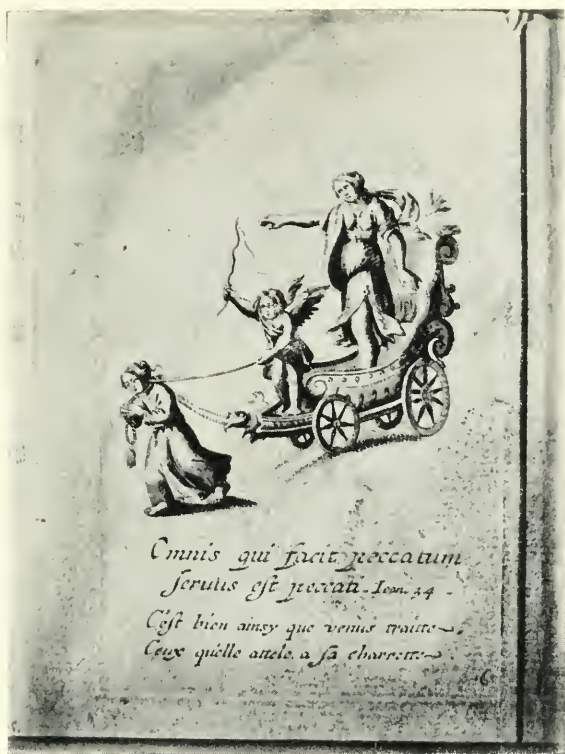 Omnis qui facit peccatum
servus est peccati. Ioan. 34.
C'est bien ainsy que venus traitte
Ceux quelle attele a sa charrette
6